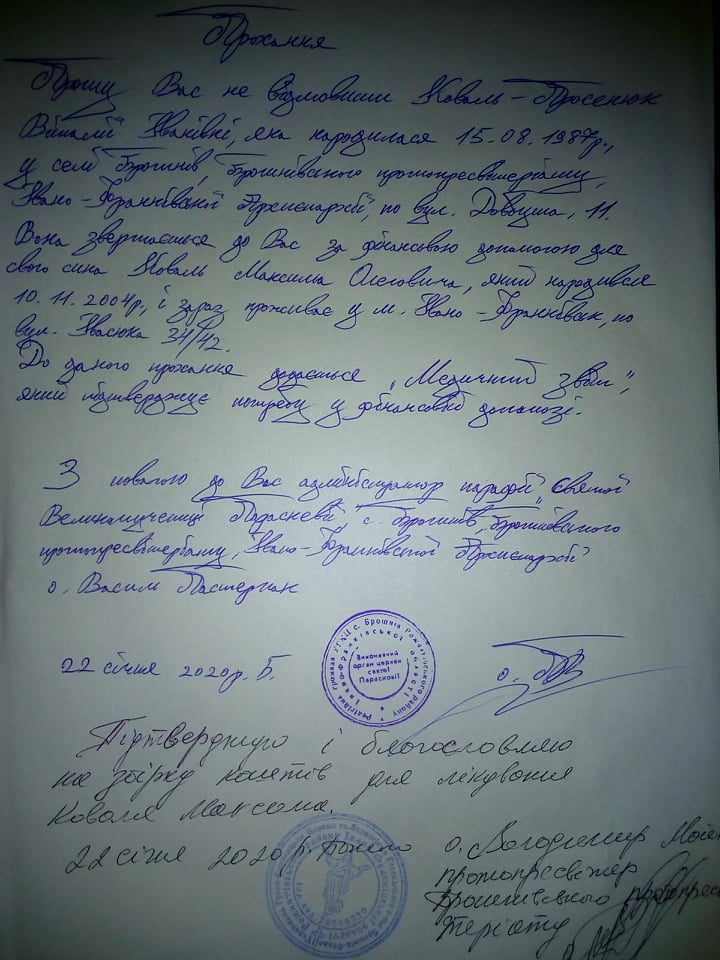 Прохання
Прошу Вас не відмовити Коваль – Просенюк
Віталії Іванівні, яка народилася 15.08.1987р.,
у селі Брошнів, Брошнівського протопресвітеріату,
Івано-Франківської Архиєпархії, по вул. Довбуша, 11.
Вона звертається до Вас за фінансовою допомогою для
свого сина Коваль Максима Олеговича, який народився
10.11.2004р, і зараз проживає у м. Івано-Франківськ, по
вул. Івасюка 34/42.
До даного прохання додається „Медичний звіт",
який підтверджує потребу у фінансовій допомозі.
З повагою до Вас адміністратор парафії „Святої
Великомучениці Параскевії" с. Брошнів, Брошнівського
протопресвітеріату, Івано-Франківської Архиєпархії
о. Василь Пастернак
22 січня 2020 р. Б.
Релігійна громада УГКЦ с. Брошнів Рожнятівського району
Івано-Франківської області
Виконавчий
орган церкви
святої
Параскевії
о.
Підтверджую і благословляю
на збірку коштів для лікування
Коваля Максима.
22 січня 2020 р. Божого
о. Володимир
протопресвітер
Брошнівського протопрес
теріату